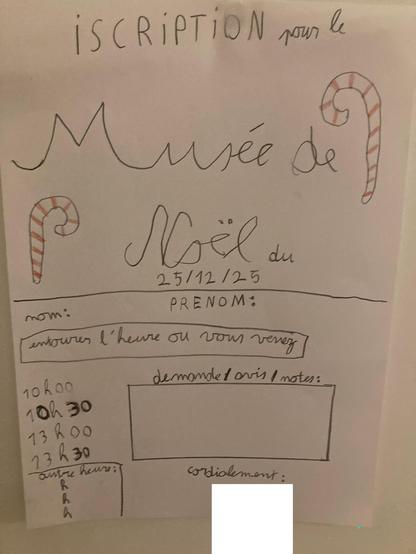 iSCRiPTiON pour le
Musée de
Noël du
25/12/25
PRENOM:
nom:
entoures l'heure ou vous venez
demande/avis/notes:
10h00
10h30
13h00
13h30
autre heure:
h
h
h
cordialement: